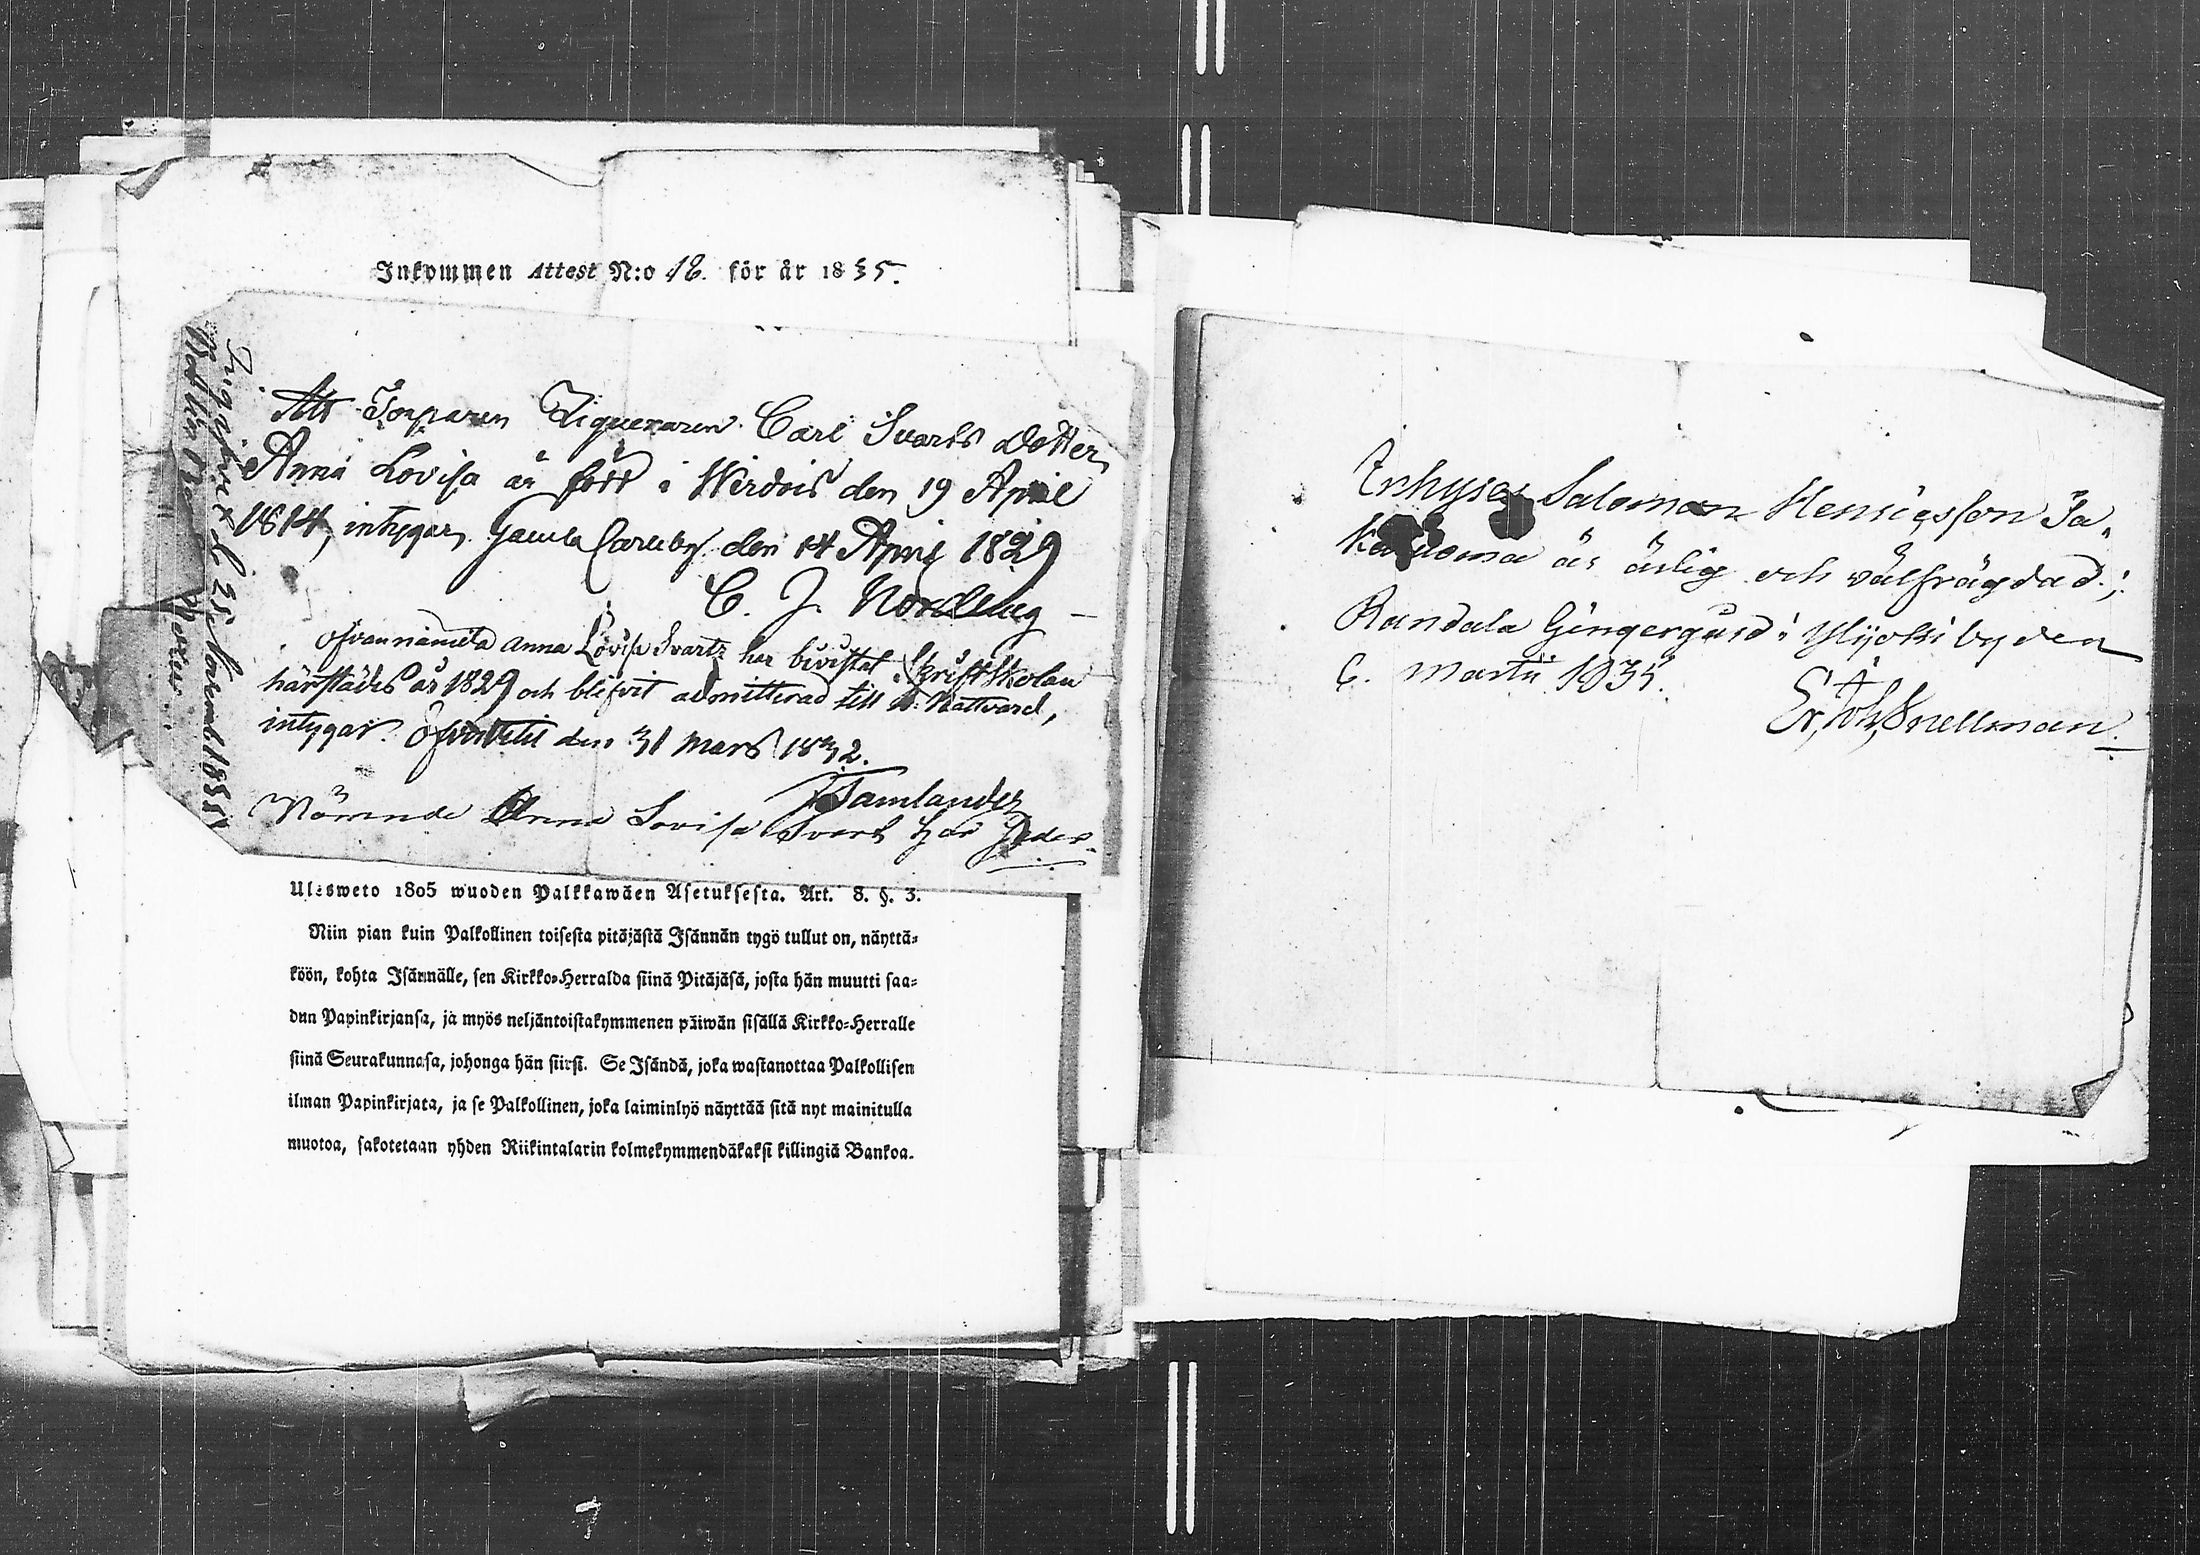 Inkommen Attest N:o 18. för år 1835.
Att Torparen Carl Svarts Dotter
Anna Lovisa är född i Wirdois den 19 April
1814, intygar, Gamla Carleby den 14 April 1829
C. J. Nordling
Ofvannämnda Anna Lovisa Svartz har bivistat Skriftskolan
härstädes år 1829 och blifvit admitterad till H. Nattvard,
intygar. den 31 Mars 1832.
Tamlander
Anna Lovisa Svart har
Ulosweto 1805 wuoden Palkkawäen Asetuksesta. Art. 8. §. 3.
Niin pian kuin Palkollinen toisesta pitäjästä Isännän tygö tullut on, näyttä-
köön, kohta Isännälle, sen Kirkko-Herralda siinä Pitäjäsä, josta hän muutti saa-
dun Papinkirjansa, ja myös neljäntoistakymmenen päiwän sisällä Kirkko-Herralle
siinä Seurakunnasa, johonga hän siirsi. Se Isändä, joka wastanottaa Palkollisen
ilman Papinkirjata, ja se Palkollinen, joka laiminlyö näyttää sitä nyt mainitulla
muotoa, sakotetaan yhden Riikintalarin kolmekymmendäkaksi killingiä Bankoa.
Inhyses Salomon Henricsson Ja-
är ärlig och välfrägdad;
Randala Gingergård i Ylijoki by den
6. Martii 1835.
Er. Joh. Snellman.
7